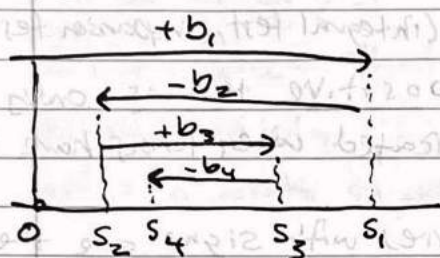 +b₁
-b₂
+b₃
-b₄
0 S₂ S₄ S₃ S₁